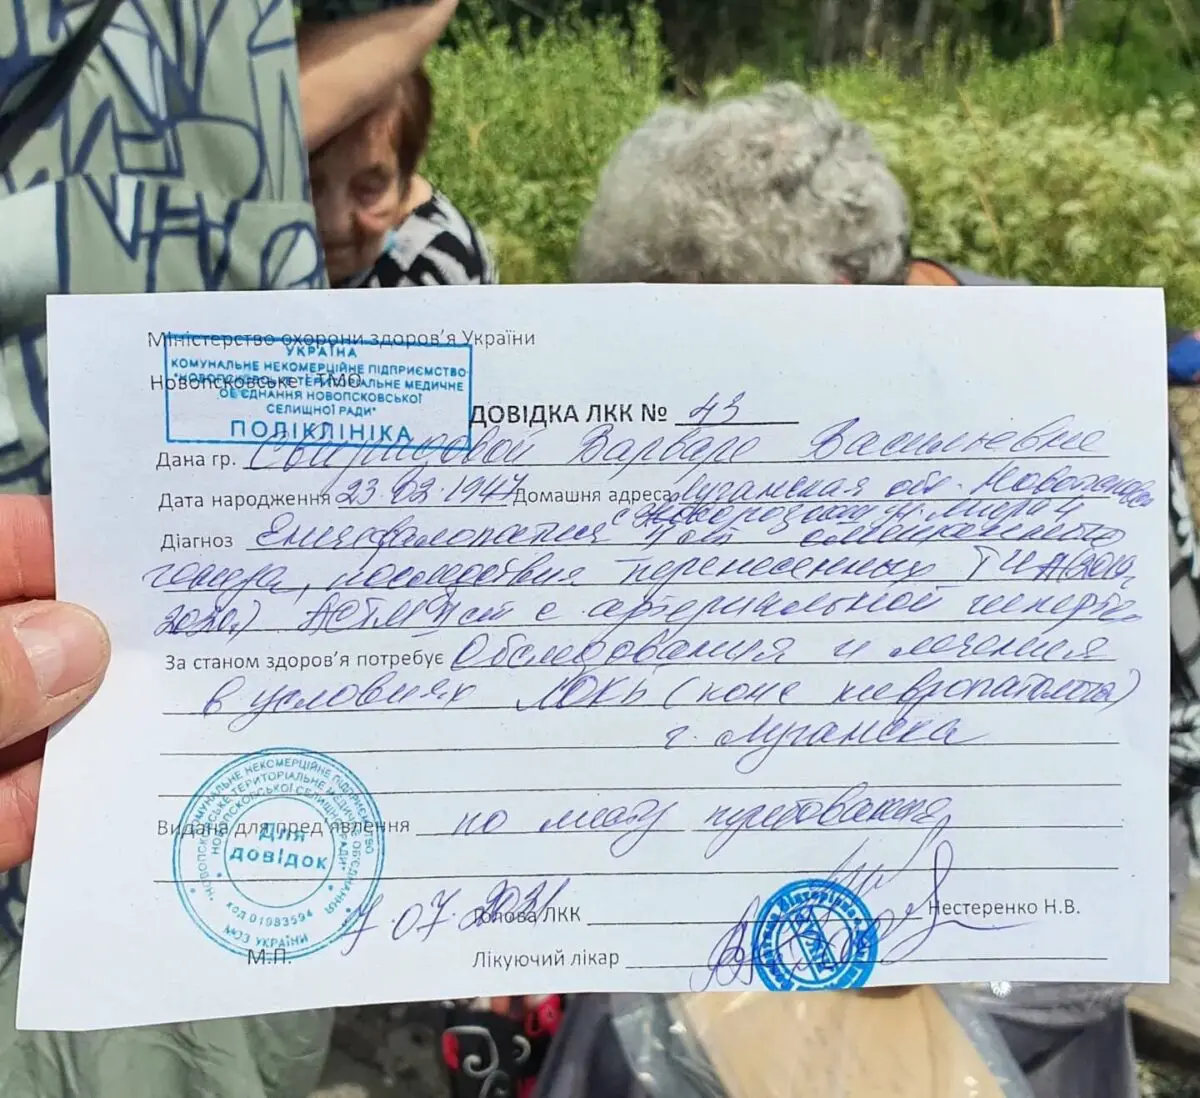 Міністерство охорони здоров'я України
УКРАЇНА
КОМУНАЛЬНЕ НЕКОМЕРЦІЙНЕ ПІДПРИЄМСТВО
Новопсковське ТМО
"НОВОПСКОВСЬКЕ ТЕРИТОРІАЛЬНЕ МЕДИЧНЕ
ОБ'ЄДНАННЯ НОВОПСКОВСЬКОЇ
СЕЛИЩНОЇ РАДИ"
ПОЛІКЛІНІКА
ДОВІДКА ЛКК № 43
Дана гр. Варваре Васильевне
Дата народження 23.02.1947 Домашня адреса Луганская обл.
Діагноз Энцефалопатия смешанного
генеза, последствия перенесенных ТИА
2020г) с артериальной
За станом здоров'я потребує Обследования и лечения
в условиях ЛОКБ (конс невропатолога)
г. Луганска
Видана для пред'явлення по месту требования
КОМУНАЛЬНЕ НЕКОМЕРЦІЙНЕ ПІДПРИЄМСТВО
"НОВОПСКОВСЬКЕ ТЕРИТОРІАЛЬНЕ МЕДИЧНЕ ОБ'ЄДНАННЯ
НОВОПСКОВСЬКОЇ СЕЛИЩНОЇ РАДИ"
Для
довідок
код 01983594
МОЗ УКРАЇНИ
7.07.2021 Голова ЛКК Нестеренко Н.В.
М.П. Лікуючий лікар